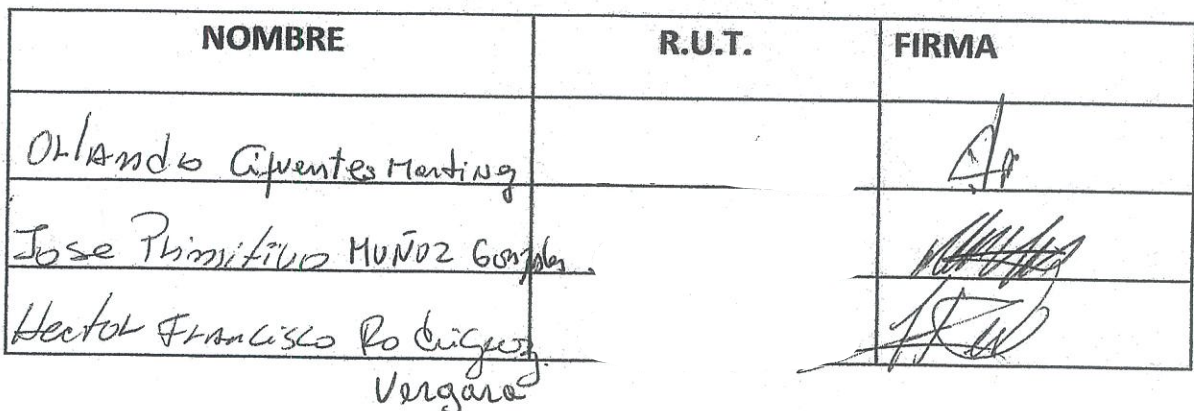 NOMBRE R.U.T. FIRMA
Orlando Cifuentes Martinez
Jose Primitivo MUÑOZ Gonzales
Hector Francisco Rodriguez
Vergara